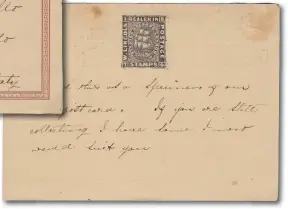 llo
to
ety
DEALER IN
POSTAGE
STAMPS
this as a Specimen of our
postcard. If you are still
collecting I have some I most
send suit you